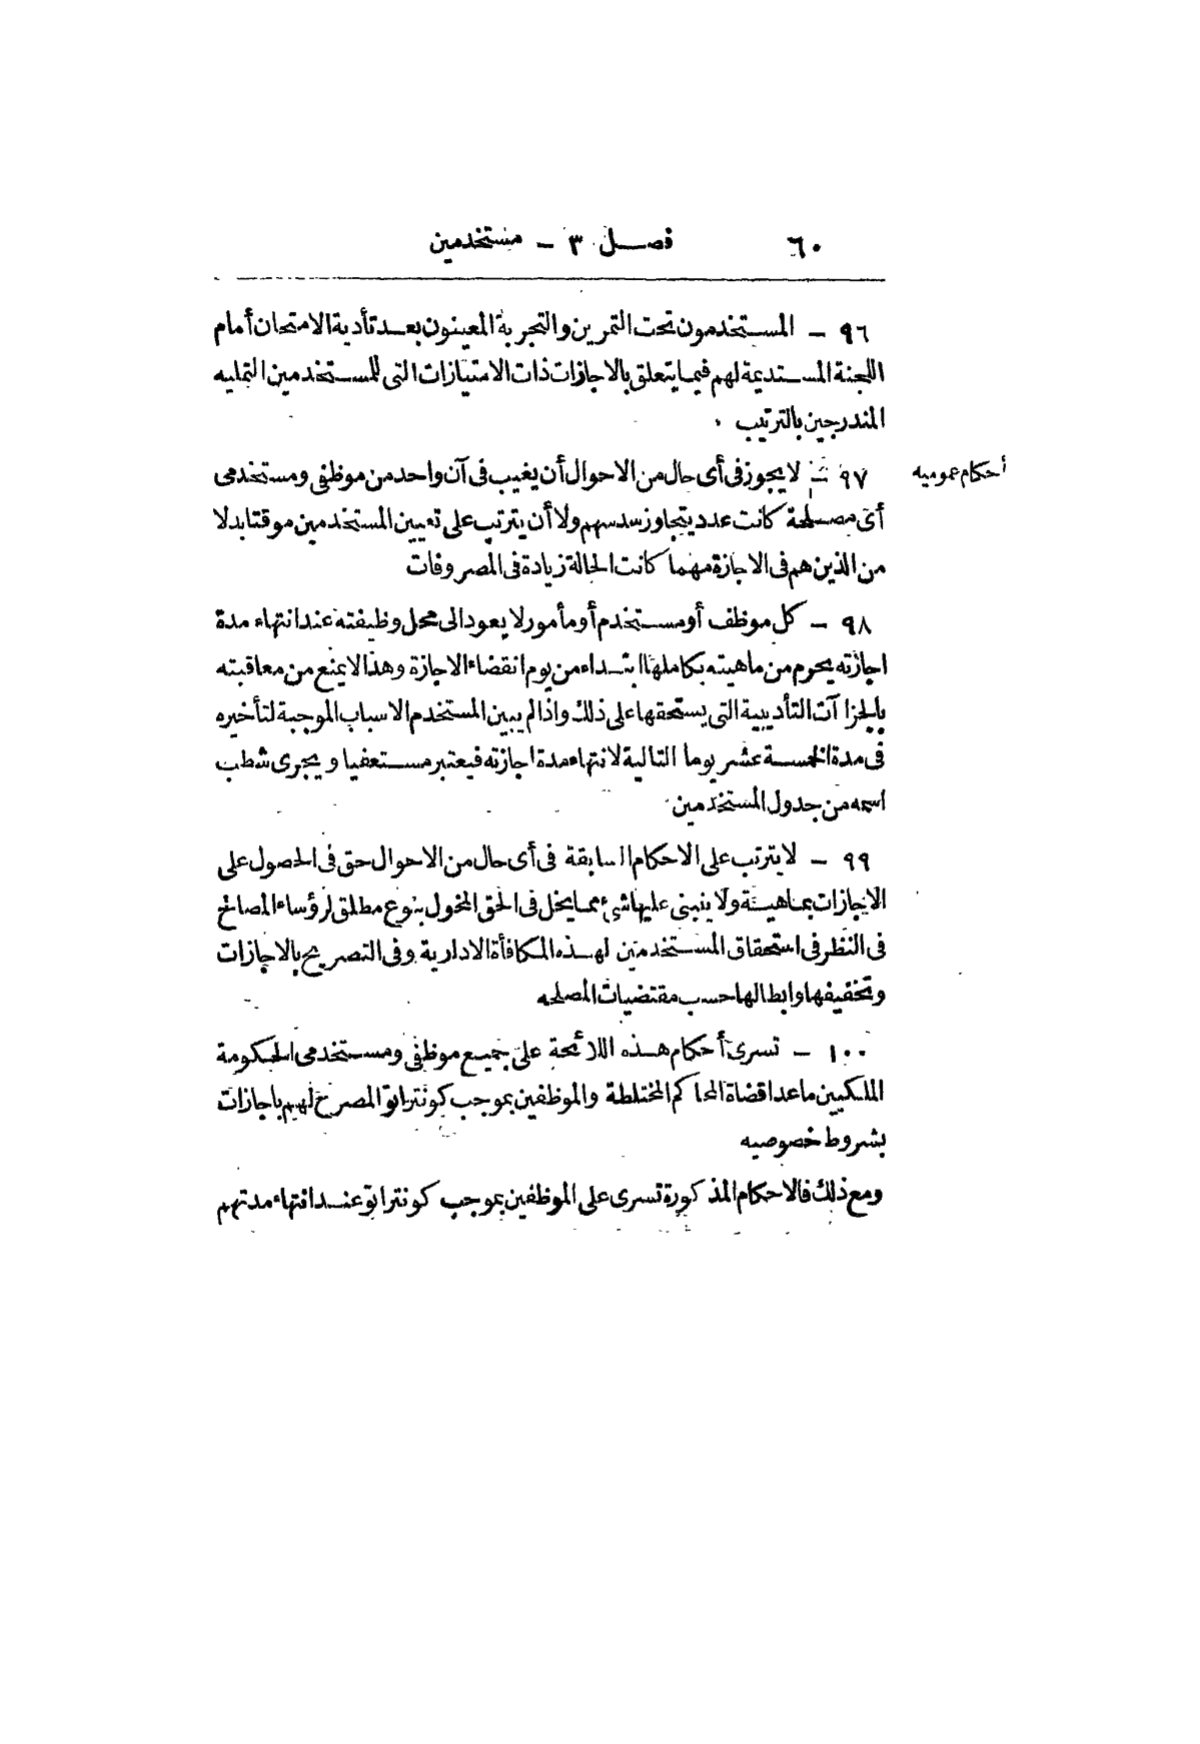 ٦٠ فصل ٣ – مستخدمين
٩٦ – المستخدمون تحت التمرين والتجربة المعينون بعد تأدية الامتحان أمام
اللجنة المستديمة لهم فيما يتعلق بالاجازات ذات الامتيازات التى للمستخدمين التمليه
المندرجين بالترتيب .
أحكام عموميه
٩٧ – لا يجوز فى أى حال من الاحوال أن يغيب فى آن واحد من موظفى ومستخدمى
أى مصلحة كانت عدد يتجاوز سدسهم ولا أن يترتب على تعيين المستخدمين موقتا بدلا
من الذين هم فى الاجازة مهما كانت الحالة زيادة فى المصروفات
٩٨ – كل موظف أو مستخدم أو مأمور لا يعود الى محل وظيفته عند انتهاء مدة
اجازته يحرم من ماهيته بكاملها ابتداء من يوم انقضاء الاجازة وهذا لا يمنع من معاقبته
بالجزا آت التأديبية التى يستحقها على ذلك واذا لم يبين المستخدم الاسباب الموجبة لتأخيره
فى مدة الخمسة عشر يوما التالية لانتهاء مدة اجازته فيعتبر مستعفيا ويجرى شطب
اسمه من جدول المستخدمين
٩٩ – لا يترتب على الاحكام السابقة فى أى حال من الاحوال حق فى الحصول على
الاجازات بماهية ولا ينبنى عليها شئ مما يخل فى الحق المخول بنوع مطلق لرؤساء المصالح
فى النظر فى استحقاق المستخدمين لهذه المكافأة الادارية وفى التصريح بالاجازات
وتخفيفها وابطالها حسب مقتضيات المصلحه
١٠٠ – تسرى أحكام هذه اللائحة على جميع موظفى ومستخدمى الحكومة
الملكيين ماعدا قضاة المحاكم المختلطة والموظفين بموجب كونتراتو المصرح لهم باجازات
بشروط خصوصيه
ومع ذلك فالاحكام المذكورة تسرى على الموظفين بموجب كونتراتو عند انتهاء مدتهم